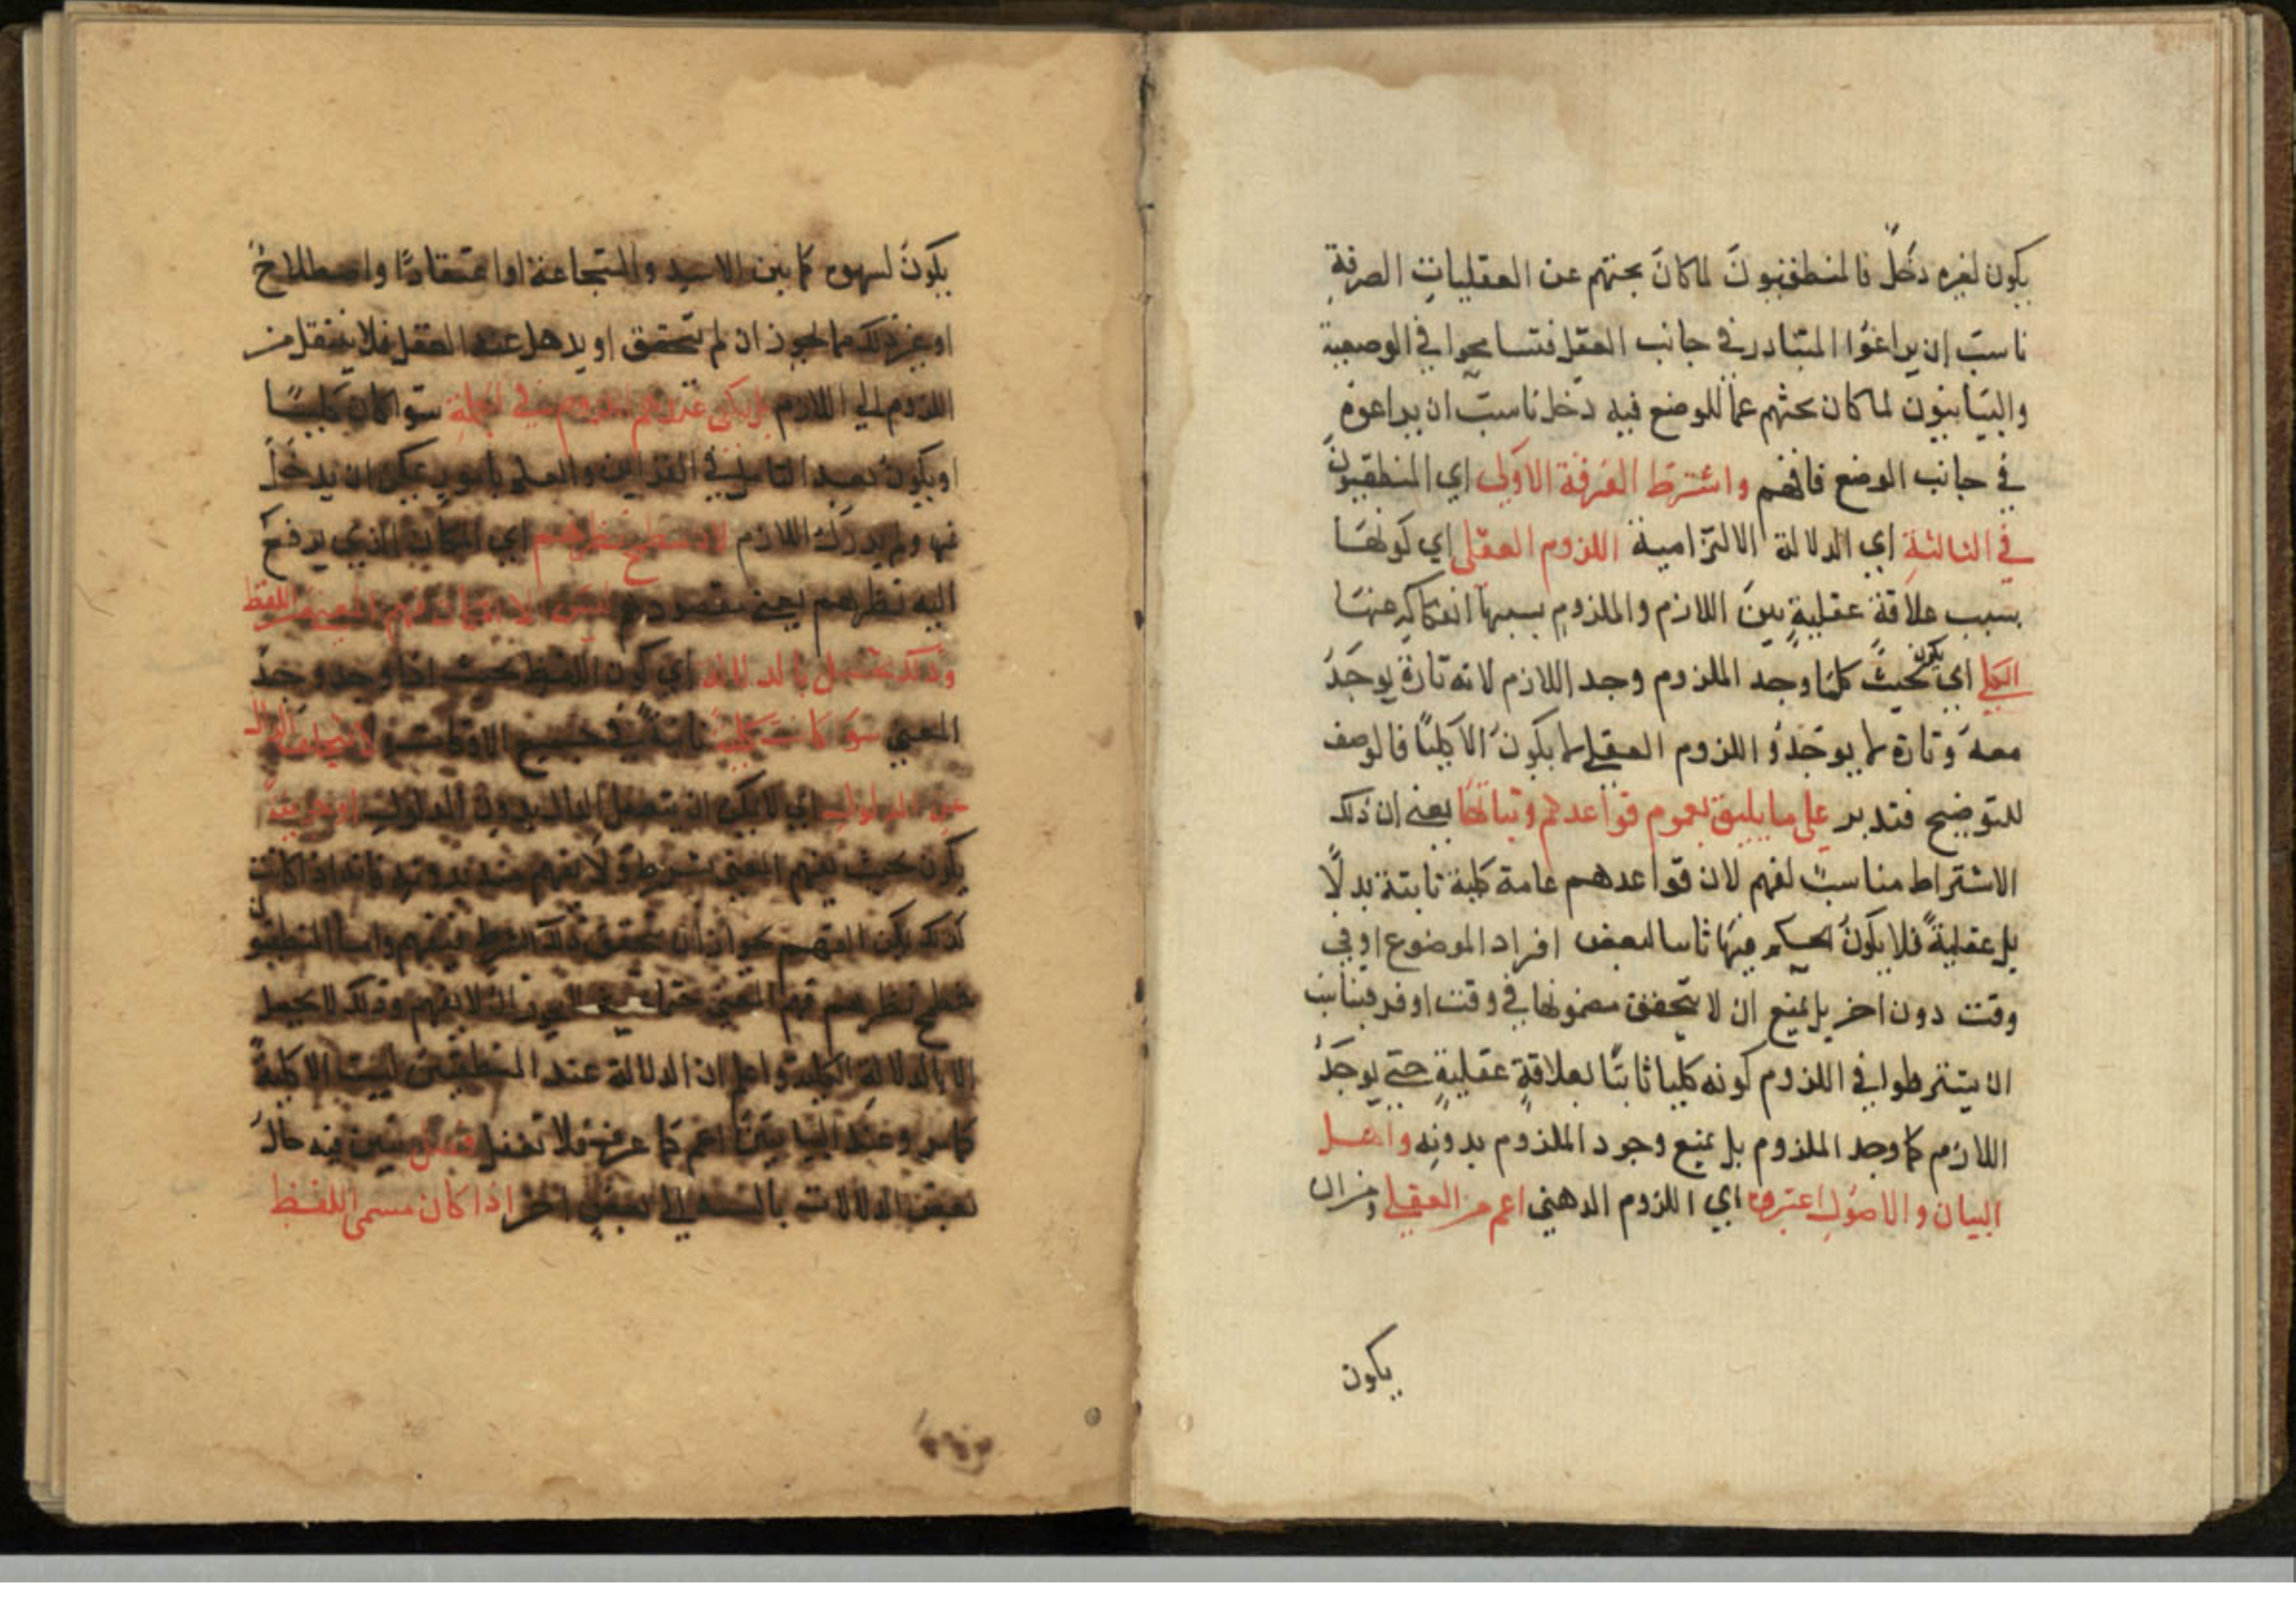 يكون لغيره دخلٌ فالمنطقيونَ لما كانَ بحثهم عن العقلياتِ الصرفةِ
ناسبَ ان يراعُوا المتبادر في جانب العقل فتسامحوا في الوضعية
والبيَانيون لما كان بحثهم عما للوضع فيه دخل ناسبَ ان يراعوه
في جانب الوضع فافهم واشترط الفرقة الاولى اي المنطقيونَ
في الثالثةِ اي الدلالة الالتزامية اللزوم العقلي اي كونهَا
بسبب علاقة عقليةٍ بينَ اللازم والملزوم بسببها انفكاكه عنهَا
الكلي اي يكون بحيثُ كلما وجد الملزوم وجد اللازم لانه تارة يوجَدُ
معهُ وتارة لا يوجَدُ واللزوم العقلي لا يكونُ الا كليًا فالوصف
للتوضيح فتدبر على ما يليق بعموم قواعدهم وثباتها يعني ان ذلك
الاشتراط مناسبٌ لفهم لان قواعدهم عامة كلية ثابتة بدلًا
بل عقليةً فلا يكونُ الحكم فيهَا ثابتا لبعض افراد الموضوع او في
وقت دون اخر بل يمنع ان لا يتحقق مضمونها في وقت او فرد فيناسب
ان يشترطوا في اللزوم كونه كليا ثابتًا بعلاقةٍ عقليةٍ حتى يوجَدُ
اللازم كلما وجد الملزوم بل يمنع وجود الملزوم بدونه واهل
البيان والاصول اعتبروه اي اللزوم الذهني اعم من العقلي من ان
يكون
يكونُ كما بين الاسد والشجاعة او اعتقاديًا واصطلاحٌ
او غير ذلك مما يجوز ان لم يتحقق او يذهل عند العقل فلا ينتقل من
اللزوم الي اللازم بل يكفي عندهم اللزوم في الجملةِ سوا كان كليًا
او يكونُ بعد التامل في القراين والعلم بامورٍ يمكن ان يدخلَ
فيها ولم يدرك اللازم اي المكان الذي يرفع
اليه نظرهم يعني مقصودهم ليس الا فهم المعنى من اللفظ
وذلك بالدلالة اي كون اللفظ بحيث اذا وجد وجدَ
المعني سوا كانت كلية في جميع الاوقات لا يتخلف الدال
عن المدلول اي لا يمكن ان الدال بدون المدلولِ او جزيية
يكون بحيث يفهم المعنى بشرط ولا يفهم عند بدونه فانه اذا كانت
كذلك يمكن الفهم بجواز ان يتحقق ذلك الشرط فيفهم واما المنطقيون
نظرهم فهم المعنى لا يفهم وذلك لا يحصل
الا بالدلالة الكلية واعلم ان الدلالة عند المنطقيين ليست الا كليةً
كما مر وعند البيانيين اعم كما عرفت فلا تغفل فصل يبين فيه حالُ
بعض الدلالات بالنسبة الي بعضٍ اخر اذا كان مسمى اللفظ